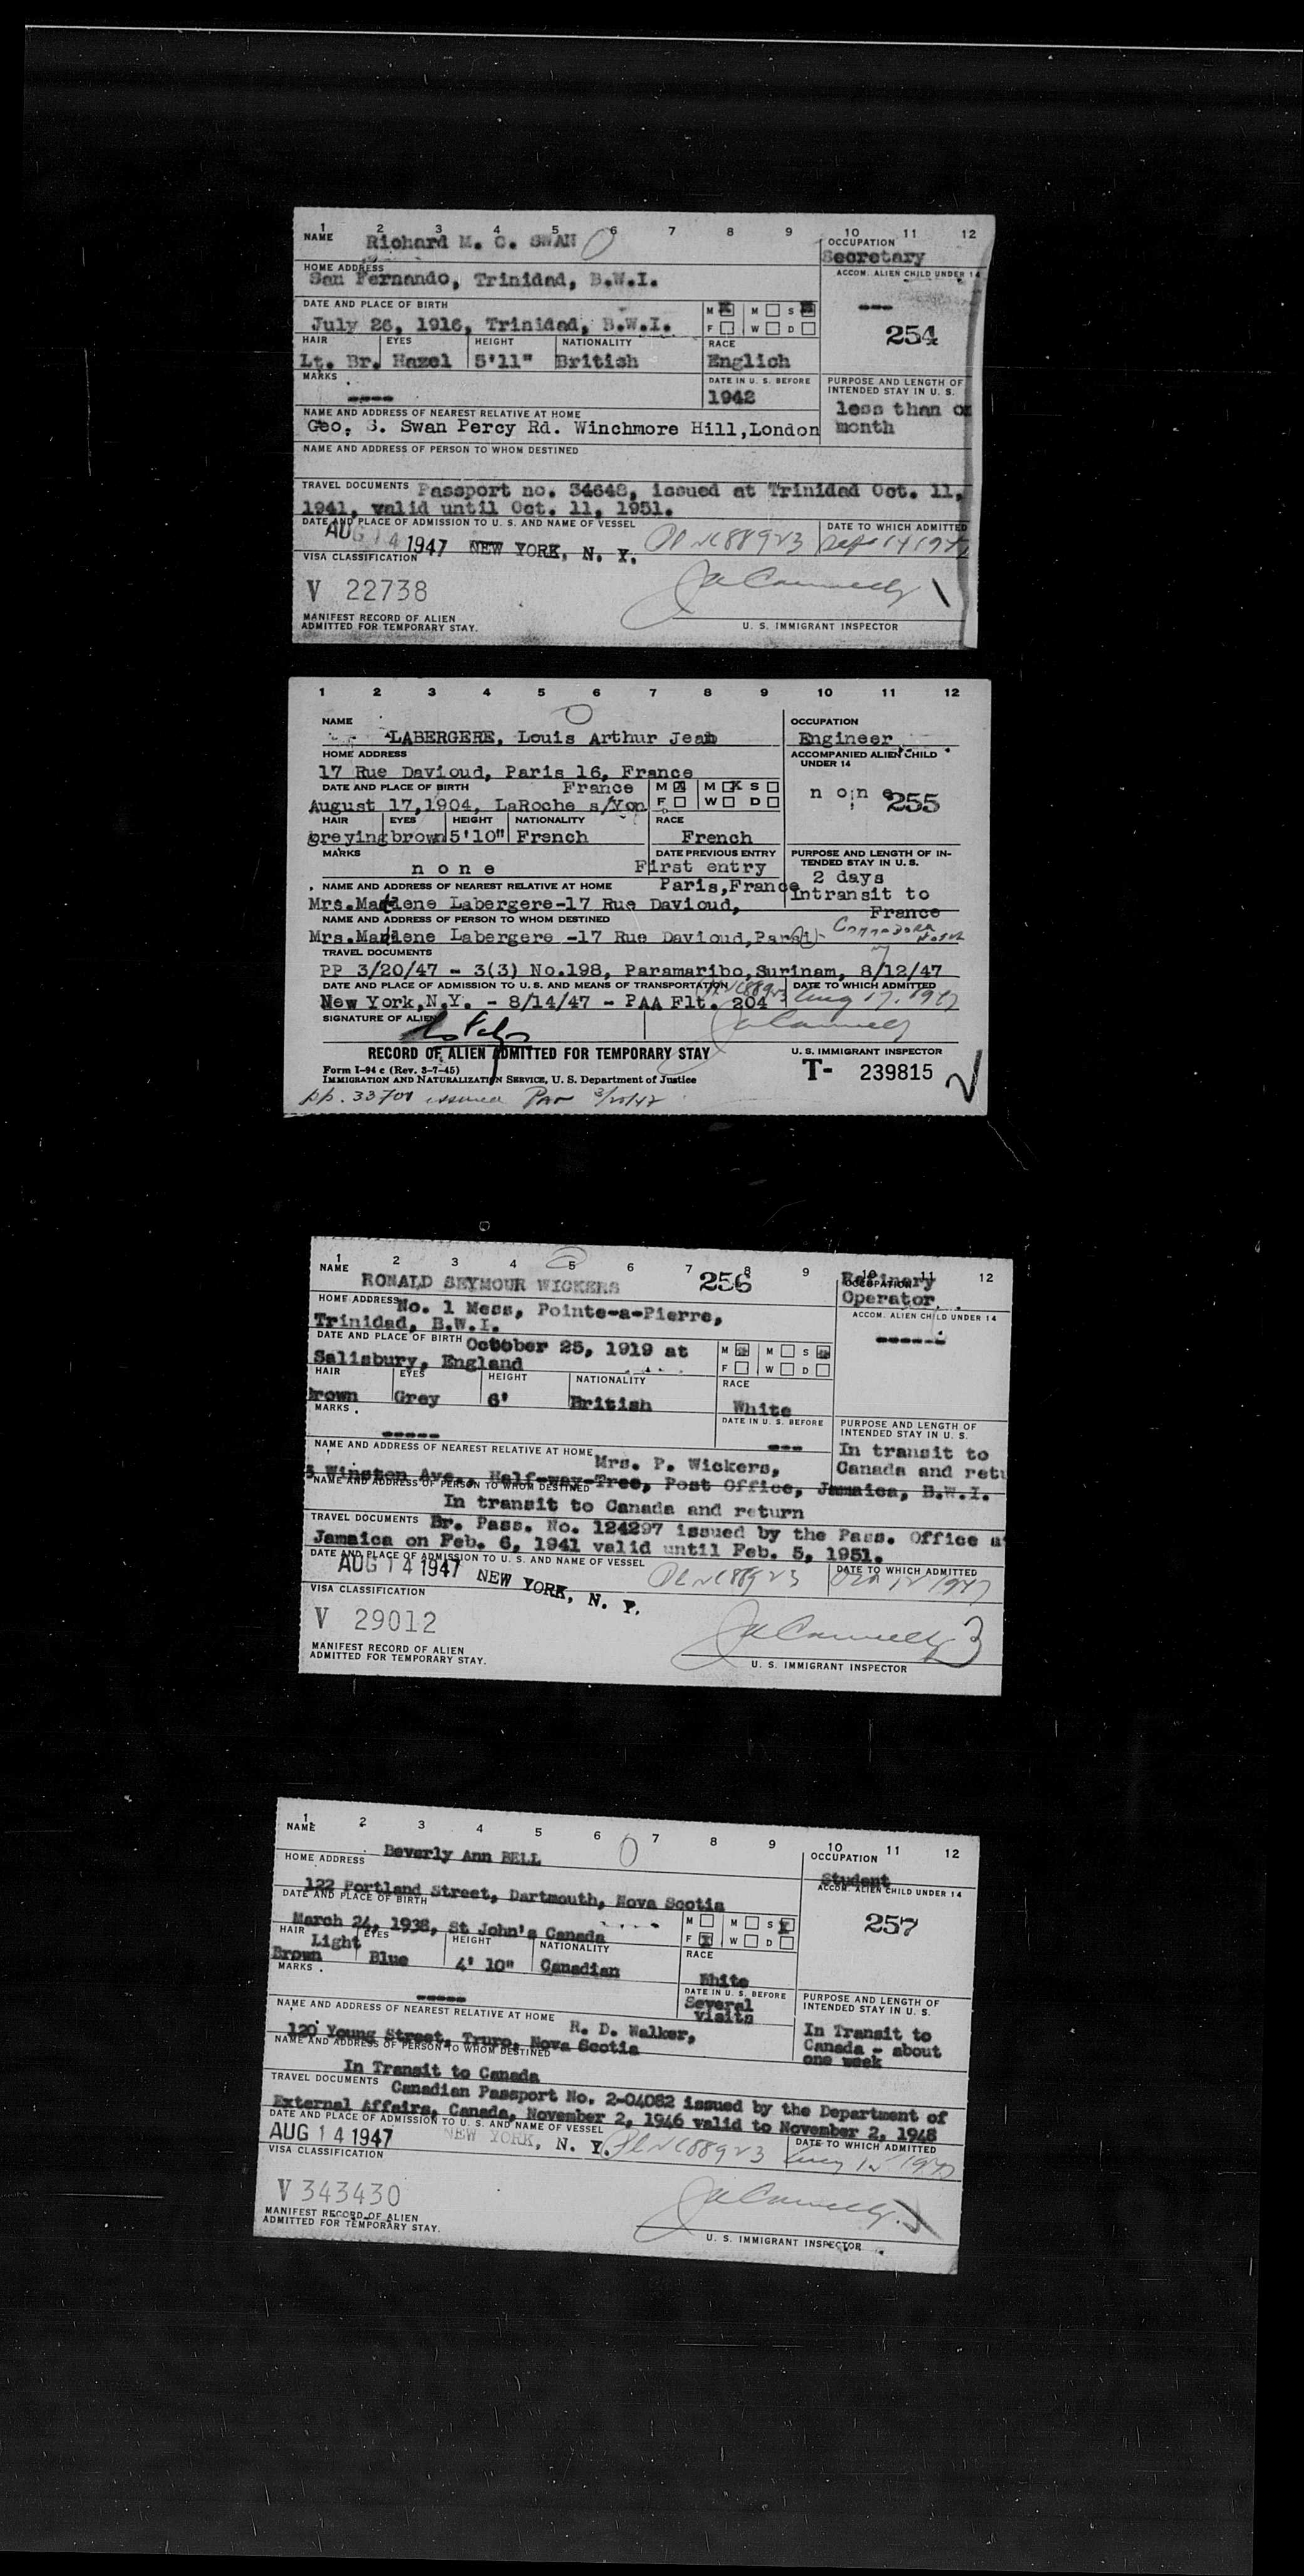 1 2 3 4 5 6 7 8 9 10 11 12
NAME Richard M. C. SWAN OCCUPATION
Secretary
HOME ADDRESS ACCOM. ALIEN CHILD UNDER 14
San Fernando, Trinidad, B.W.I. ---
DATE AND PLACE OF BIRTH M X M S X
July 26, 1916, Trinidad, B.W.I. F W D 254
HAIR EYES HEIGHT NATIONALITY RACE
Lt. Br. Hazel 5'11" British English
MARKS DATE IN U. S. BEFORE PURPOSE AND LENGTH OF INTENDED STAY IN U. S.
---- 1942 less than on
NAME AND ADDRESS OF NEAREST RELATIVE AT HOME month
Geo. S. Swan Percy Rd. Winchmore Hill,London
NAME AND ADDRESS OF PERSON TO WHOM DESTINED
TRAVEL DOCUMENTS Passport no. 34648, issued at Trinidad Oct. 11,
1941, valid until Oct. 11, 1951.
DATE AND PLACE OF ADMISSION TO U. S. AND NAME OF VESSEL DATE TO WHICH ADMITTED
AUG 14 1947 NEW YORK, N. Y. NC88923 Sept 14 1947
VISA CLASSIFICATION
V 22738
MANIFEST RECORD OF ALIEN
ADMITTED FOR TEMPORARY STAY. U. S. IMMIGRANT INSPECTOR
1
1 2 3 4 5 6 7 8 9 10 11 12
NAME OCCUPATION
LABERGERE, Louis Arthur Jean Engineer
HOME ADDRESS ACCOMPANIED ALIEN CHILD UNDER 14
17 Rue Davioud, Paris 16, France
DATE AND PLACE OF BIRTH France M X M X S n o n e 255
August 17,1904, LaRoche s/Yon F W D
HAIR EYES HEIGHT NATIONALITY RACE
greying brown 5'10" French French
MARKS DATE PREVIOUS ENTRY PURPOSE AND LENGTH OF INTENDED STAY IN U. S.
n o n e First entry 2 days
NAME AND ADDRESS OF NEAREST RELATIVE AT HOME Paris,France Intransit to
Mrs. Labergere-17 Rue Davioud, France
NAME AND ADDRESS OF PERSON TO WHOM DESTINED
Mrs. Labergere -17 Rue Davioud, Commodore Hotel
TRAVEL DOCUMENTS
PP 3/20/47 - 3(3) No.198, Paramaribo,Surinam, 8/12/47
DATE AND PLACE OF ADMISSION TO U. S. AND MEANS OF TRANSPORTATION DATE TO WHICH ADMITTED
New York,N.Y. - 8/14/47 - PAA Flt. 204 NC88923 Aug 17, 1947
SIGNATURE OF ALIEN
RECORD OF ALIEN ADMITTED FOR TEMPORARY STAY U. S. IMMIGRANT INSPECTOR
Form I-94 c (Rev. 3-7-45) T- 239815 2
IMMIGRATION AND NATURALIZATION SERVICE, U. S. Department of Justice
pp. 33701 issued Par 3/20/47
1 2 3 4 5 6 7 8 9 10 11 12
NAME RONALD SEYMOUR WICKERS 256 OCCUPATION Refinery
HOME ADDRESS No. 1 Mess, Pointe-a-Pierre, Operator
Trinidad, B.W.I. ACCOM. ALIEN CHILD UNDER 14
DATE AND PLACE OF BIRTH October 25, 1919 at M X M S X ------
Salisbury, England F W D
HAIR EYES HEIGHT NATIONALITY RACE
brown Grey 6' British White
MARKS DATE IN U. S. BEFORE PURPOSE AND LENGTH OF INTENDED STAY IN U. S.
----- --- In transit to
NAME AND ADDRESS OF NEAREST RELATIVE AT HOME Mrs. P. Wickers, Canada and retu
Winston Ave., Half-way-Tree, Post Office, Jamaica, B.W.I.
NAME AND ADDRESS OF PERSON TO WHOM DESTINED
In transit to Canada and return
TRAVEL DOCUMENTS Br. Pass. No. 124297 issued by the Pass. Office at
Jamaica on Feb. 6, 1941 valid until Feb. 5, 1951.
DATE AND PLACE OF ADMISSION TO U. S. AND NAME OF VESSEL DATE TO WHICH ADMITTED
AUG 14 1947 NEW YORK, N. Y. NC88923 1947
VISA CLASSIFICATION
V 29012
MANIFEST RECORD OF ALIEN
ADMITTED FOR TEMPORARY STAY. U. S. IMMIGRANT INSPECTOR
3
1 2 3 4 5 6 7 8 9 10 11 12
NAME Beverly Ann BELL OCCUPATION
HOME ADDRESS Student
122 Portland Street, Dartmouth, Nova Scotia ACCOM. ALIEN CHILD UNDER 14
DATE AND PLACE OF BIRTH M M S X 257
March 24, 1938, St John's Canada F X W D
HAIR EYES HEIGHT NATIONALITY RACE
Light Brown Blue 4' 10" Canadian White
MARKS DATE IN U. S. BEFORE PURPOSE AND LENGTH OF INTENDED STAY IN U. S.
----- Several visits
NAME AND ADDRESS OF NEAREST RELATIVE AT HOME R. D. Walker, In Transit to
120 Young Street, Truro, Nova Scotia Canada - about
NAME AND ADDRESS OF PERSON TO WHOM DESTINED one week
In Transit to Canada
TRAVEL DOCUMENTS Canadian Passport No. 2-04082 issued by the Department of
External Affairs, Canada, November 2, 1946 valid to November 2, 1948
DATE AND PLACE OF ADMISSION TO U. S. AND NAME OF VESSEL DATE TO WHICH ADMITTED
AUG 14 1947 NEW YORK, N. Y. NC88923 1947
VISA CLASSIFICATION
V 343430
MANIFEST RECORD OF ALIEN
ADMITTED FOR TEMPORARY STAY. U. S. IMMIGRANT INSPECTOR